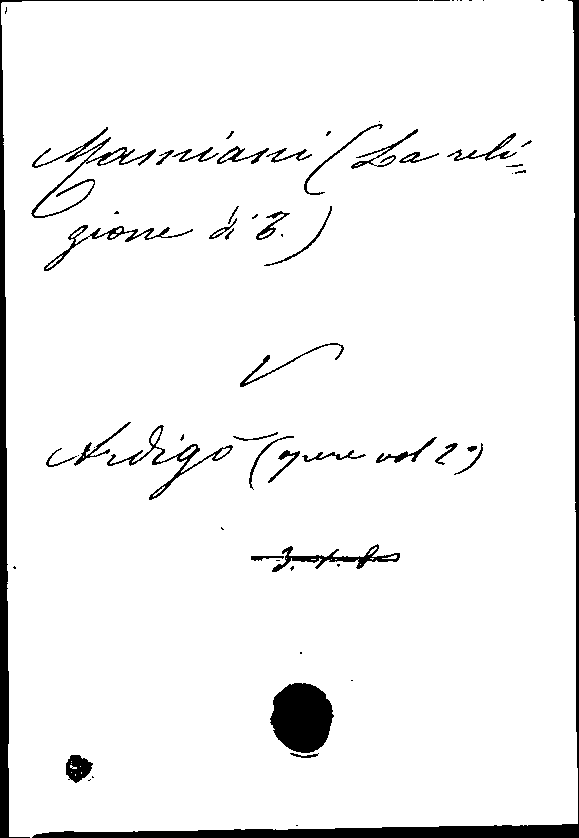 Mamiani (La reli=
gione di T.)
V
Ardigò (opere vol 2º)
3. 1. 8